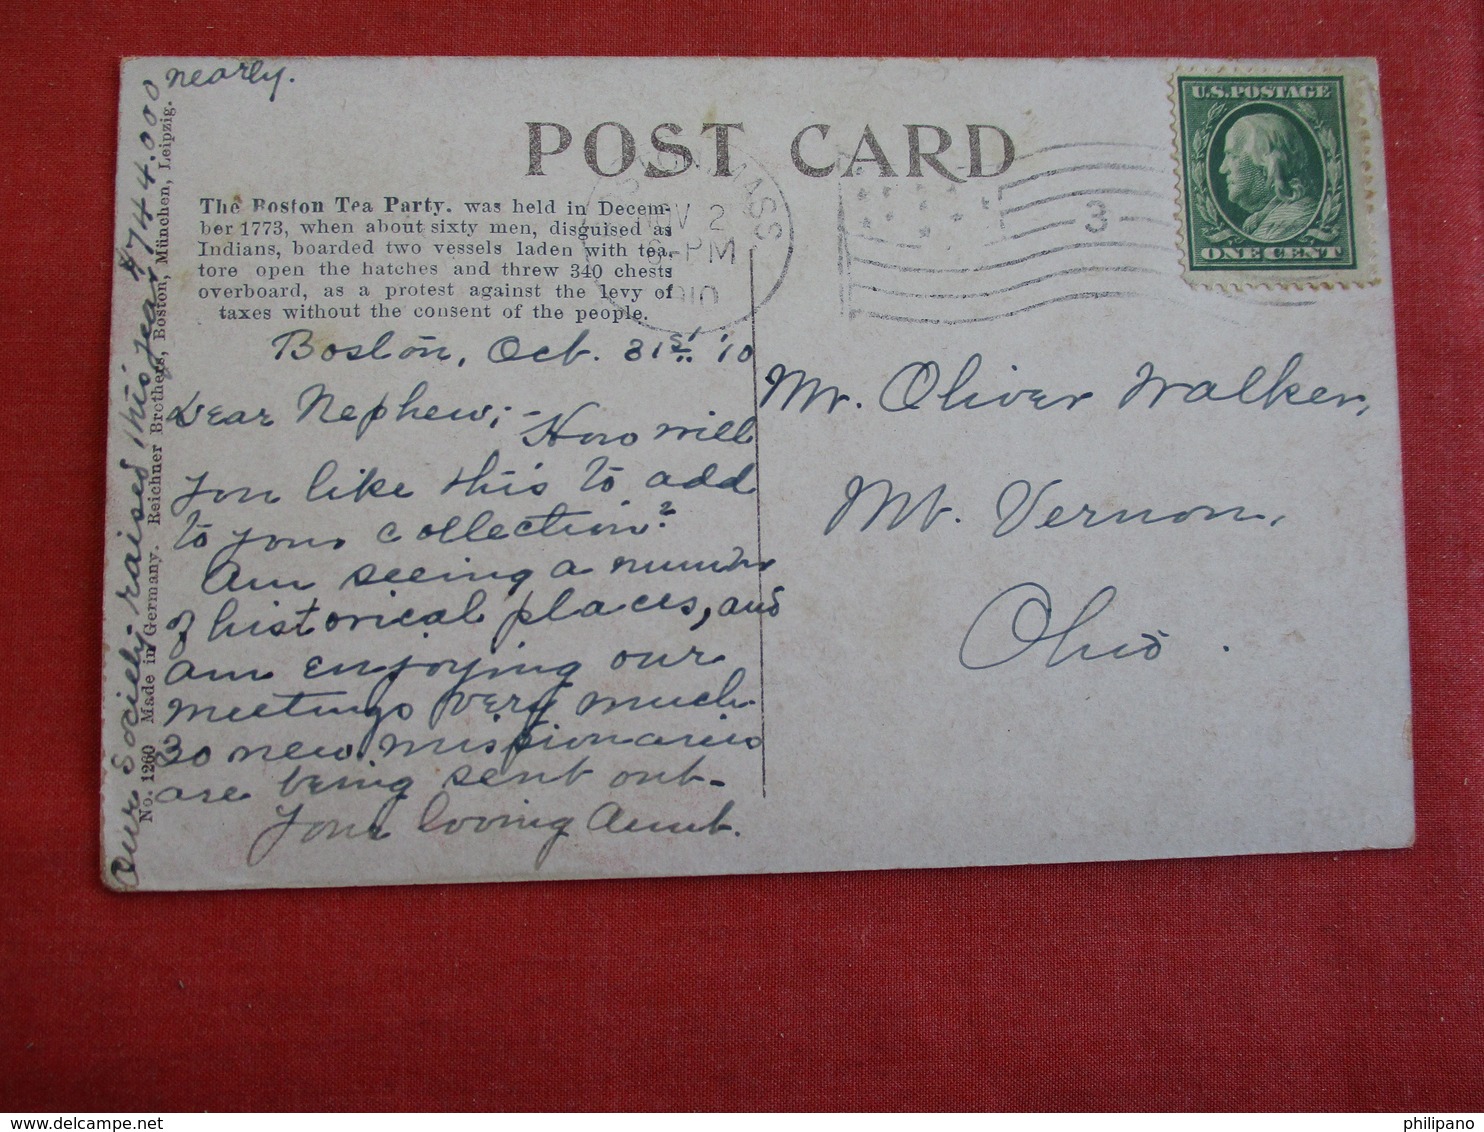 POST CARD
U.S. POSTAGE
ONE CENT
MASS
NOV 2
6-PM
1910
3
The Boston Tea Party. was held in Decem-
ber 1773, when about sixty men, disguised as
Indians, boarded two vessels laden with tea,
tore open the hatches and threw 340 chests
overboard, as a protest against the levy of
taxes without the consent of the people.
Boston, Oct. 31st. '10
Dear Nephew; - How will
you like this to add
to your collection?
Am seeing a number
of historical places, and
am enjoying our
meetings very much
30 new missionaries
are being sent out-
Your loving Aunt.
Our Society raised this year $744.000
nearly.
No. 1260 Made in Germany. Reichner Brothers, Boston, München, Leipzig.
Mr. Oliver Walker,
Mt. Vernon,
Ohio.
philipano
www.delcampe.net